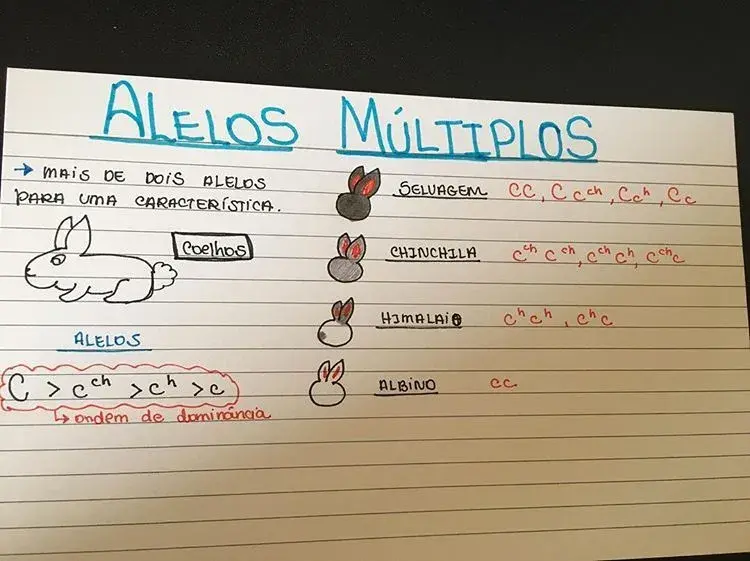 ALELOS MÚLTIPLOS
→ MAIS DE DOIS ALELOS
PARA UMA CARACTERÍSTICA.
COELHOS
ALELOS
C > cᶜʰ > cʰ > c
↳ ordem de dominância
SELVAGEM CC, Ccᶜʰ, Ccʰ, Cc
CHINCHILA cᶜʰcᶜʰ, cᶜʰcʰ, cᶜʰc
HIMALAIO cʰcʰ, cʰc
ALBINO cc